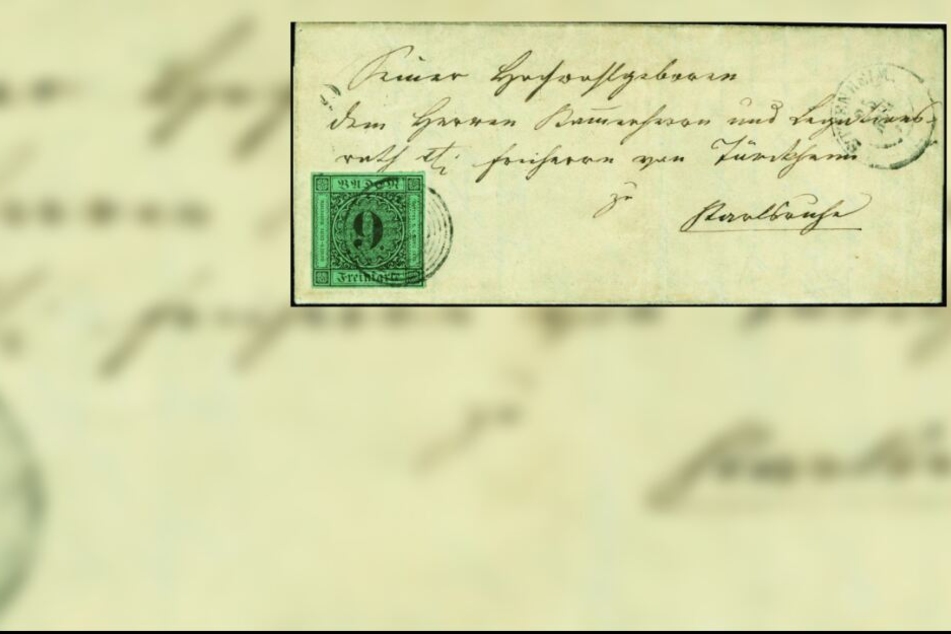 Seiner Hochwohlgeboren
dem Herren Kam̅erherrn und Legations-
rath Freiherrn von Türckheim
zu
Karlsruhe
ETTENHEIM.
BADEN
9
Freimarke